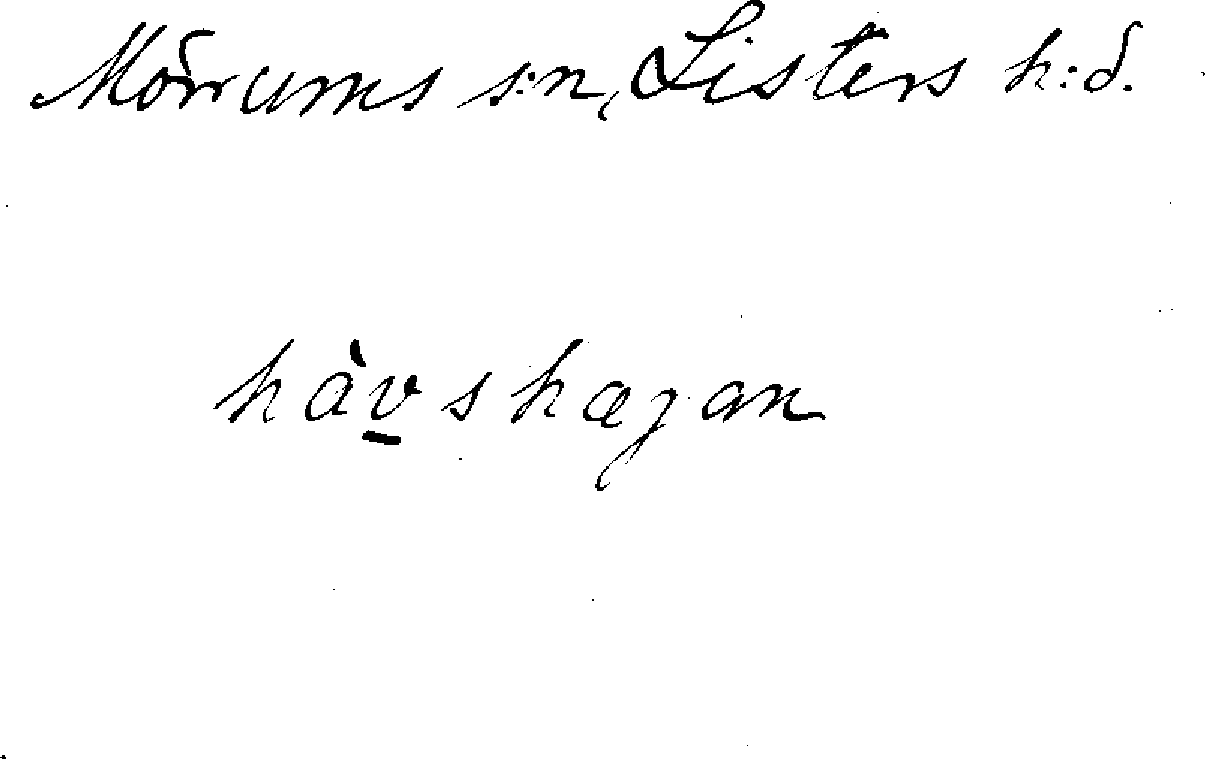 Mörrums s:n, Listers h:d.
hàv̲shagan